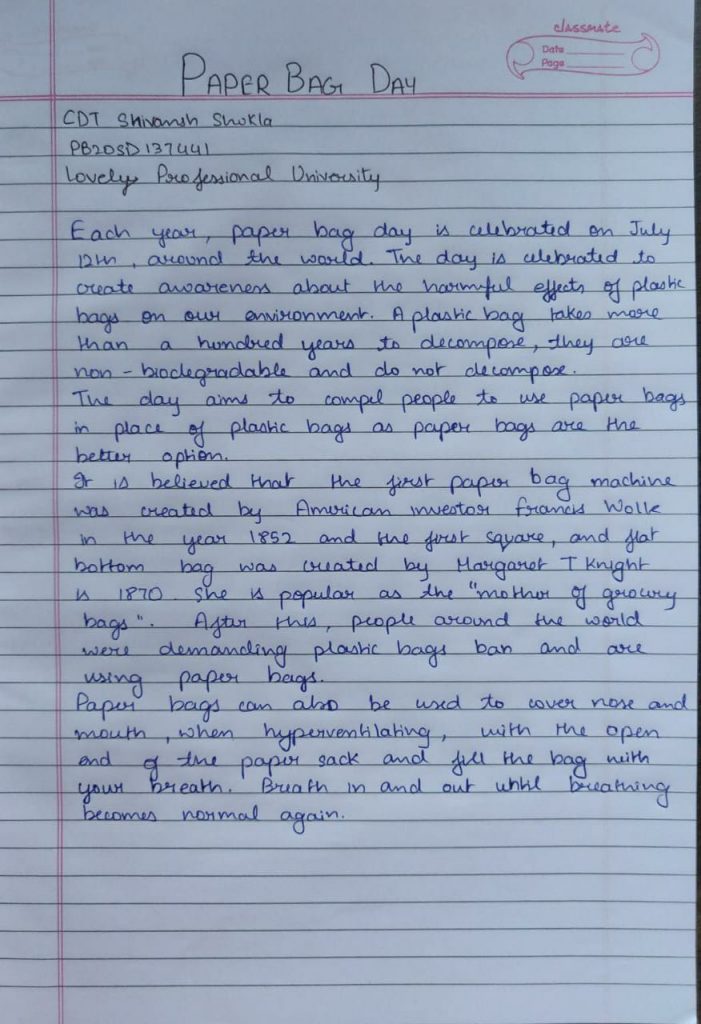 classmate
Date
Page
PAPER BAG DAY
CDT Shivansh Shukla
PB20SD137441
Lovely Professional University
Each year, paper bag day is celebrated on July
12th, around the world. The day is celebrated to
create awareness about the harmful effects of plastic
bags on our environment. A plastic bag takes more
than a hundred years to decompose, they are
non-biodegradable and do not decompose.
The day aims to compel people to use paper bags
in place of plastic bags as paper bags are the
better option.
It is believed that the first paper bag machine
was created by American investor Francis Wolle
in the year 1852 and the first square, and flat
bottom bag was created by Margaret T Knight
is 1870. She is popular as the "mother of grocery
bags". After this, people around the world
were demanding plastic bags ban and are
using paper bags.
Paper bags can also be used to cover nose and
mouth, when hyperventilating, with the open
end of the paper sack and fill the bag with
your breath. Breath in and out until breathing
becomes normal again.